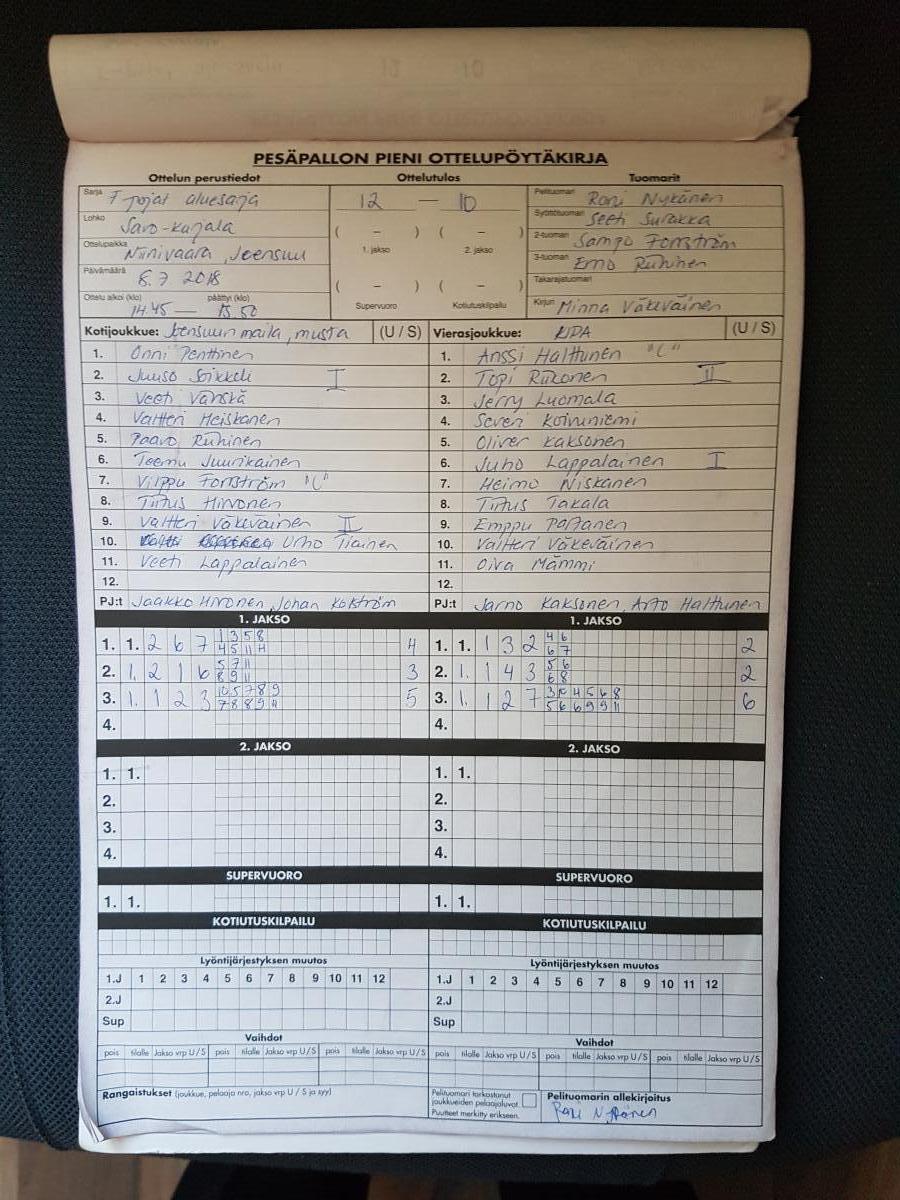 PESÄPALLON PIENI OTTELUPÖYTÄKIRJA
Ottelun perustiedot Ottelutulos Tuomarit
Sarja F pojat aluesarja
12 — 10
Pelituomari Roni Nykänen
Lohko Savo-Karjala
Syöttötuomari Surakka
( – ) ( – )
1. jakso 2. jakso
Ottelupaikka Niinivaara, Joensuu
2-tuomari Sampo Forsström
3-tuomari Eino Ruhinen
Päivämäärä 8.7 2018
Takarajatuomari
( – ) ( – )
Supervuoro Kotiutuskilpailu
Ottelu alkoi (klo) 14.45 — päättyi (klo) 15.50
Kirjuri Minna Väkeväinen
Kotijoukkue: Joensuun maila, musta (U / S) Vierasjoukkue: (U / S)
1. Onni Penttinen
2. Juuso Soikkeli I
3. Veeti Vänskä
4. Valtteri Heiskanen
5. Paavo Ruhinen
6. Teemu Juurikainen
7. Vilppu Forsström "C"
8. Tiitus Hirvonen
9. Valtteri Väkeväinen II
10. Urho Tiainen
11. Veeti Lappalainen
12.
PJ:t Jaakko Hirvonen, Johan
1. Anssi Halttunen "C"
2. Topi Riikonen II
3. Jerry Luomala
4. Severi Koivuniemi
5. Oliver Kaksonen
6. Juho Lappalainen I
7. Heimo Niskanen
8. Tiitus Takala
9. Emppu Partanen
10. Valtteri Väkeväinen
11. Oiva Mämmi
12.
PJ:t Jarno Kaksonen, Arto Halttunen
1. JAKSO 1. JAKSO
1. 1. 2 6 7 1 3 5 8 4
4 5 11 11
2. 1. 2 1 6 5 7 11 3
8 9 11
3. 1. 1 2 3 10 5 7 8 9 5
7 8 8 9 11
4.
1. 1. 1 3 2 4 6 2
6 7
2. 1. 1 4 3 5 6 2
6 8
3. 1. 1 2 7 3 10 4 5 6 8 6
5 6 6 9 9 11
4.
2. JAKSO 2. JAKSO
1. 1. 1. 1.
2. 2.
3. 3.
4. 4.
SUPERVUORO SUPERVUORO
1. 1. 1. 1.
KOTIUTUSKILPAILU KOTIUTUSKILPAILU
Lyöntijärjestyksen muutos Lyöntijärjestyksen muutos
1.J 1 2 3 4 5 6 7 8 9 10 11 12 1.J 1 2 3 4 5 6 7 8 9 10 11 12
2.J 2.J
Sup Sup
Vaihdot Vaihdot
pois tilalle Jakso vrp U/S pois tilalle Jakso vrp U/S pois tilalle Jakso vrp U/S pois tilalle Jakso vrp U/S pois tilalle Jakso vrp U/S pois tilalle Jakso vrp U/S
Rangaistukset (joukkue, pelaaja nro, jakso vrp U / S ja syy)
Pelituomari tarkastanut
joukkueiden pelaajaluvat
Puutteet merkitty erikseen.
Pelituomarin allekirjoitus
Roni Nykänen